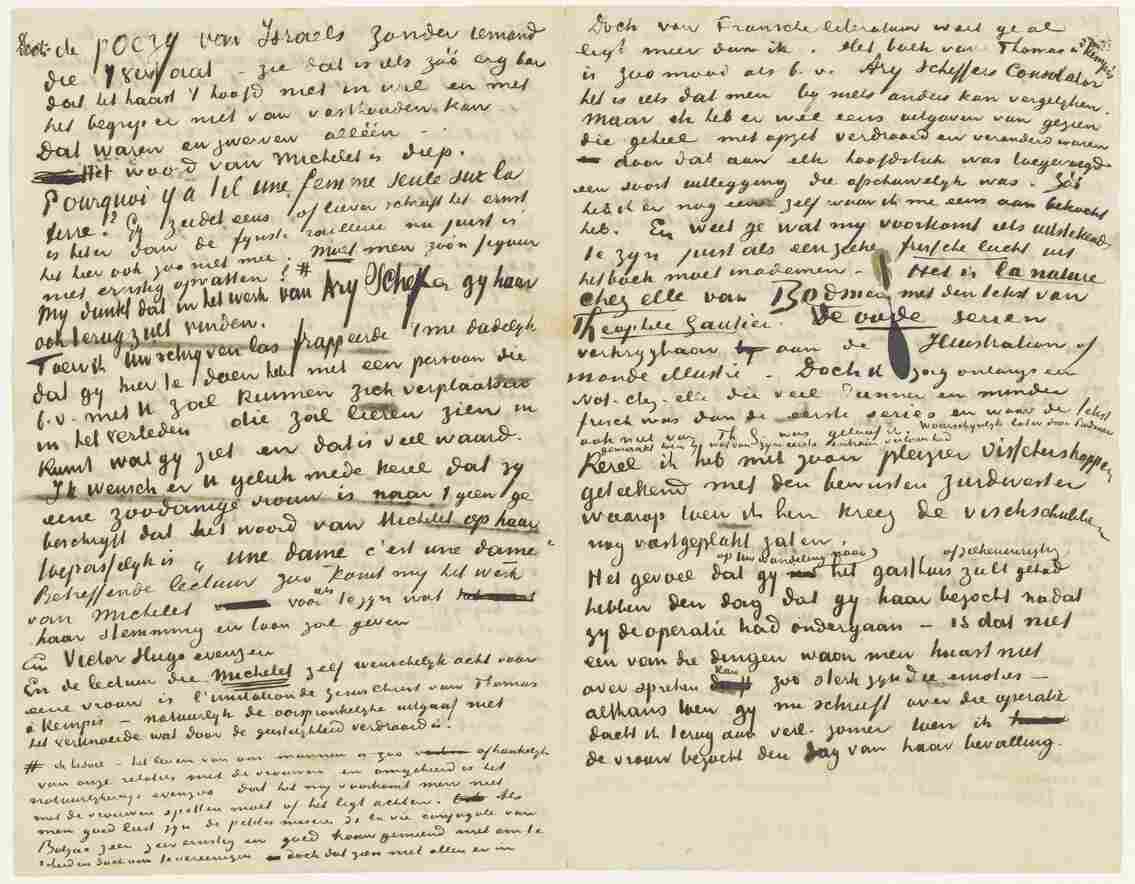 de poezy van Israels zonder iemand
die 't verstaat – zie dat is iets zóó erg
dat het haast 't hoofd niet in wil en met
het begrip er niet van vasthouden kan.
Dat waren en zwerven alléén –.
Het woord van Michelet is diep.
Pourquoi y a til une femme seule sur la
terre? Gy zeidet eens of liever schreeft het ernst
is beter dan de fynste raillerie nu juist is
het hier ook zoo niet mee. Moet men zoo'n figuur
niet ernstig opvatten? #
My dunkt dat in het werk van Ary Scheffer gy haar
ook terug zult vinden.
Toen ik Uw schryven las frappeerde 't me dadelyk
dat gy hier te doen hebt met een persoon die
b.v. met U zal kunnen zich verplaatsen
in het verleden die zal leeren zien in
kunst wat gy ziet en dat is veel waard.
Ik wensch er U geluk mede kerel dat zy
eene zoodanige vrouw is naar 't geen ge
beschryft dat het woord van Michelet op haar
toepasselyk is „une dame c'est une dame"
Betreffende lectuur zoo komt my het werk
van Michelet voor als te zyn wat
haar stemming en toon zal geven
En Victor Hugo evenzeer
En de lectuur die Michelet zelf wenschelyk acht voor
eene vrouw is l'imitation de Jesus Christ van Thomas
a Kempis – natuurlyk de oorspronkelyke uitgaaf niet
het verknoeide wat door de geestelykheid verdraaid is.
# het leven van ons mannen is zoo afhankelyk
van onze relaties met de vrouwen en omgekeerd is het
natuurlyk evenzoo dat het my voorkomt men niet
met de vrouwen spotten moet of het ligt achten. Als
men goed leest zyn de petites misères de la vie conjugale van
Balzac zeer zeer ernstig en goed gemeend niet om te
scheiden doch om te vereenigen doch dat zien niet allen er in
Doch van Fransche literatuur weet ge al
ligt meer dan ik. Het boek van Thomas a Kempis
is zoo mooi als b.v. Ary Scheffers Consolator
het is iets dat men by niets anders kan vergelyken.
Maar ik heb er wel eens uitgaven van gezien
die geheel met opzet verdraaid en veranderd waren
door dat aan elk hoofdstuk was toegevoegd
een soort uitlegging die afschuwelyk was. Zoo
heb ik er nog eene zelf waar ik me eens aan bekocht
heb. En weet ge wat my voorkomt iets uitstekends
te zyn juist als een zieke frissche lucht uit
het boek moet inademen – Het is la nature
chez elle van Bodmer met den tekst van
Théophile Gautier. De oude serien
verkrygbaar aan de Illustration of
monde illustré –. Doch ik zag onlangs een
Nat-chez-elle die veel dunner en minder
frisch was dan de eerste series en waar de tekst
ook niet van Th G was geloof ik. Waarschynlyk later door Bodmer
gemaakt toen hy wat van zyn eerste entrain verloren had
Kerel ik heb met zoo'n pleizier visscherskoppen
geteekend met den bewusten zuidwester
waarop toen ik hem kreeg de vischschubben
nog vastgeplakt zaten.
Het gevoel dat gy op Uw wandeling naar het gasthuis zult gehad
hebben den dag dat gy haar bezocht nadat
zy de operatie had ondergaan – is dat niet
een van die dingen waar men haast niet
over spreken kan zoo sterk zyn die emoties –
althans toen gy me schreeft over die operatie
dacht ik terug aan verl. zomer toen ik
de vrouw bezocht den dag van haar bevalling.